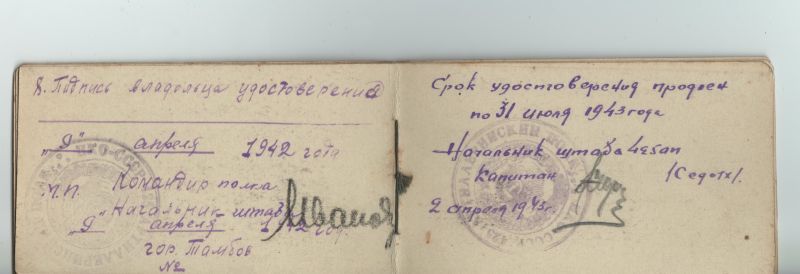 8. Подпись владельца удостоверения
"9" апреля 1942 года
М.П. Командир полка
Начальник штаба
Иванов
"9" апреля 1942 год.
гор. Тамбов
№
Срок удостоверения продлен
по 31 июля 1943 года
Начальник штаба 4 зсап
Капитан /Седых/.
2 апреля 1943 г.